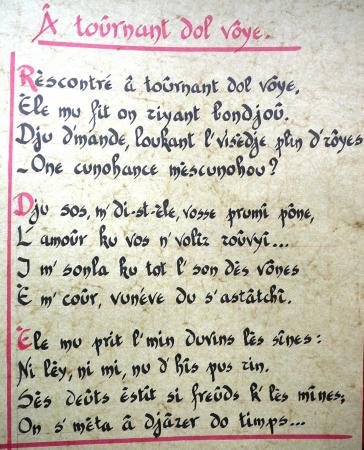 Â toûrnant dol vôye.
Rèscontré â toûrnant dol vôye,
Èle mu fit on riyant bondjoû.
Dju d'mande, loukant l'visèdje plin d'rôyes
-One cunohance mèscunohou?
Dju sos, m'di-st-èle, vosse prumî pône,
L'amoûr ku vos n'volîz roûvyî...
I m'sonla ku tot l'son dès vônes
È m'coûr, vunéve du s'astâtchî.
Èle mu prit l'min duvins lès sînes:
Ni lèy, ni mi, nu d'hîs pus rin.
Sès deûts èstît si freûds k'lès mînes;
On s'mèta â djâzer do timps...